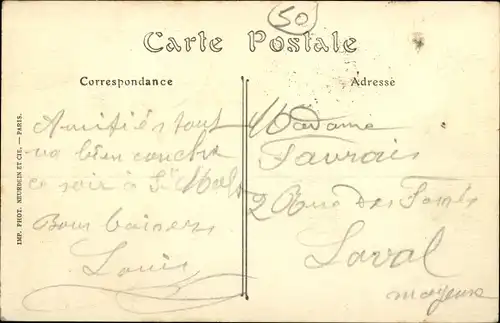 50
Carte Postale
Correspondance
Adresse
Amitiés tout
va bien couche
ce soir à St Malo
Bons baisers
Louis
Madame
Favrais
2 Rue des Fossés
Laval
Mayenne
IMP. PHOT. NEURDEIN ET CIE. — PARIS.